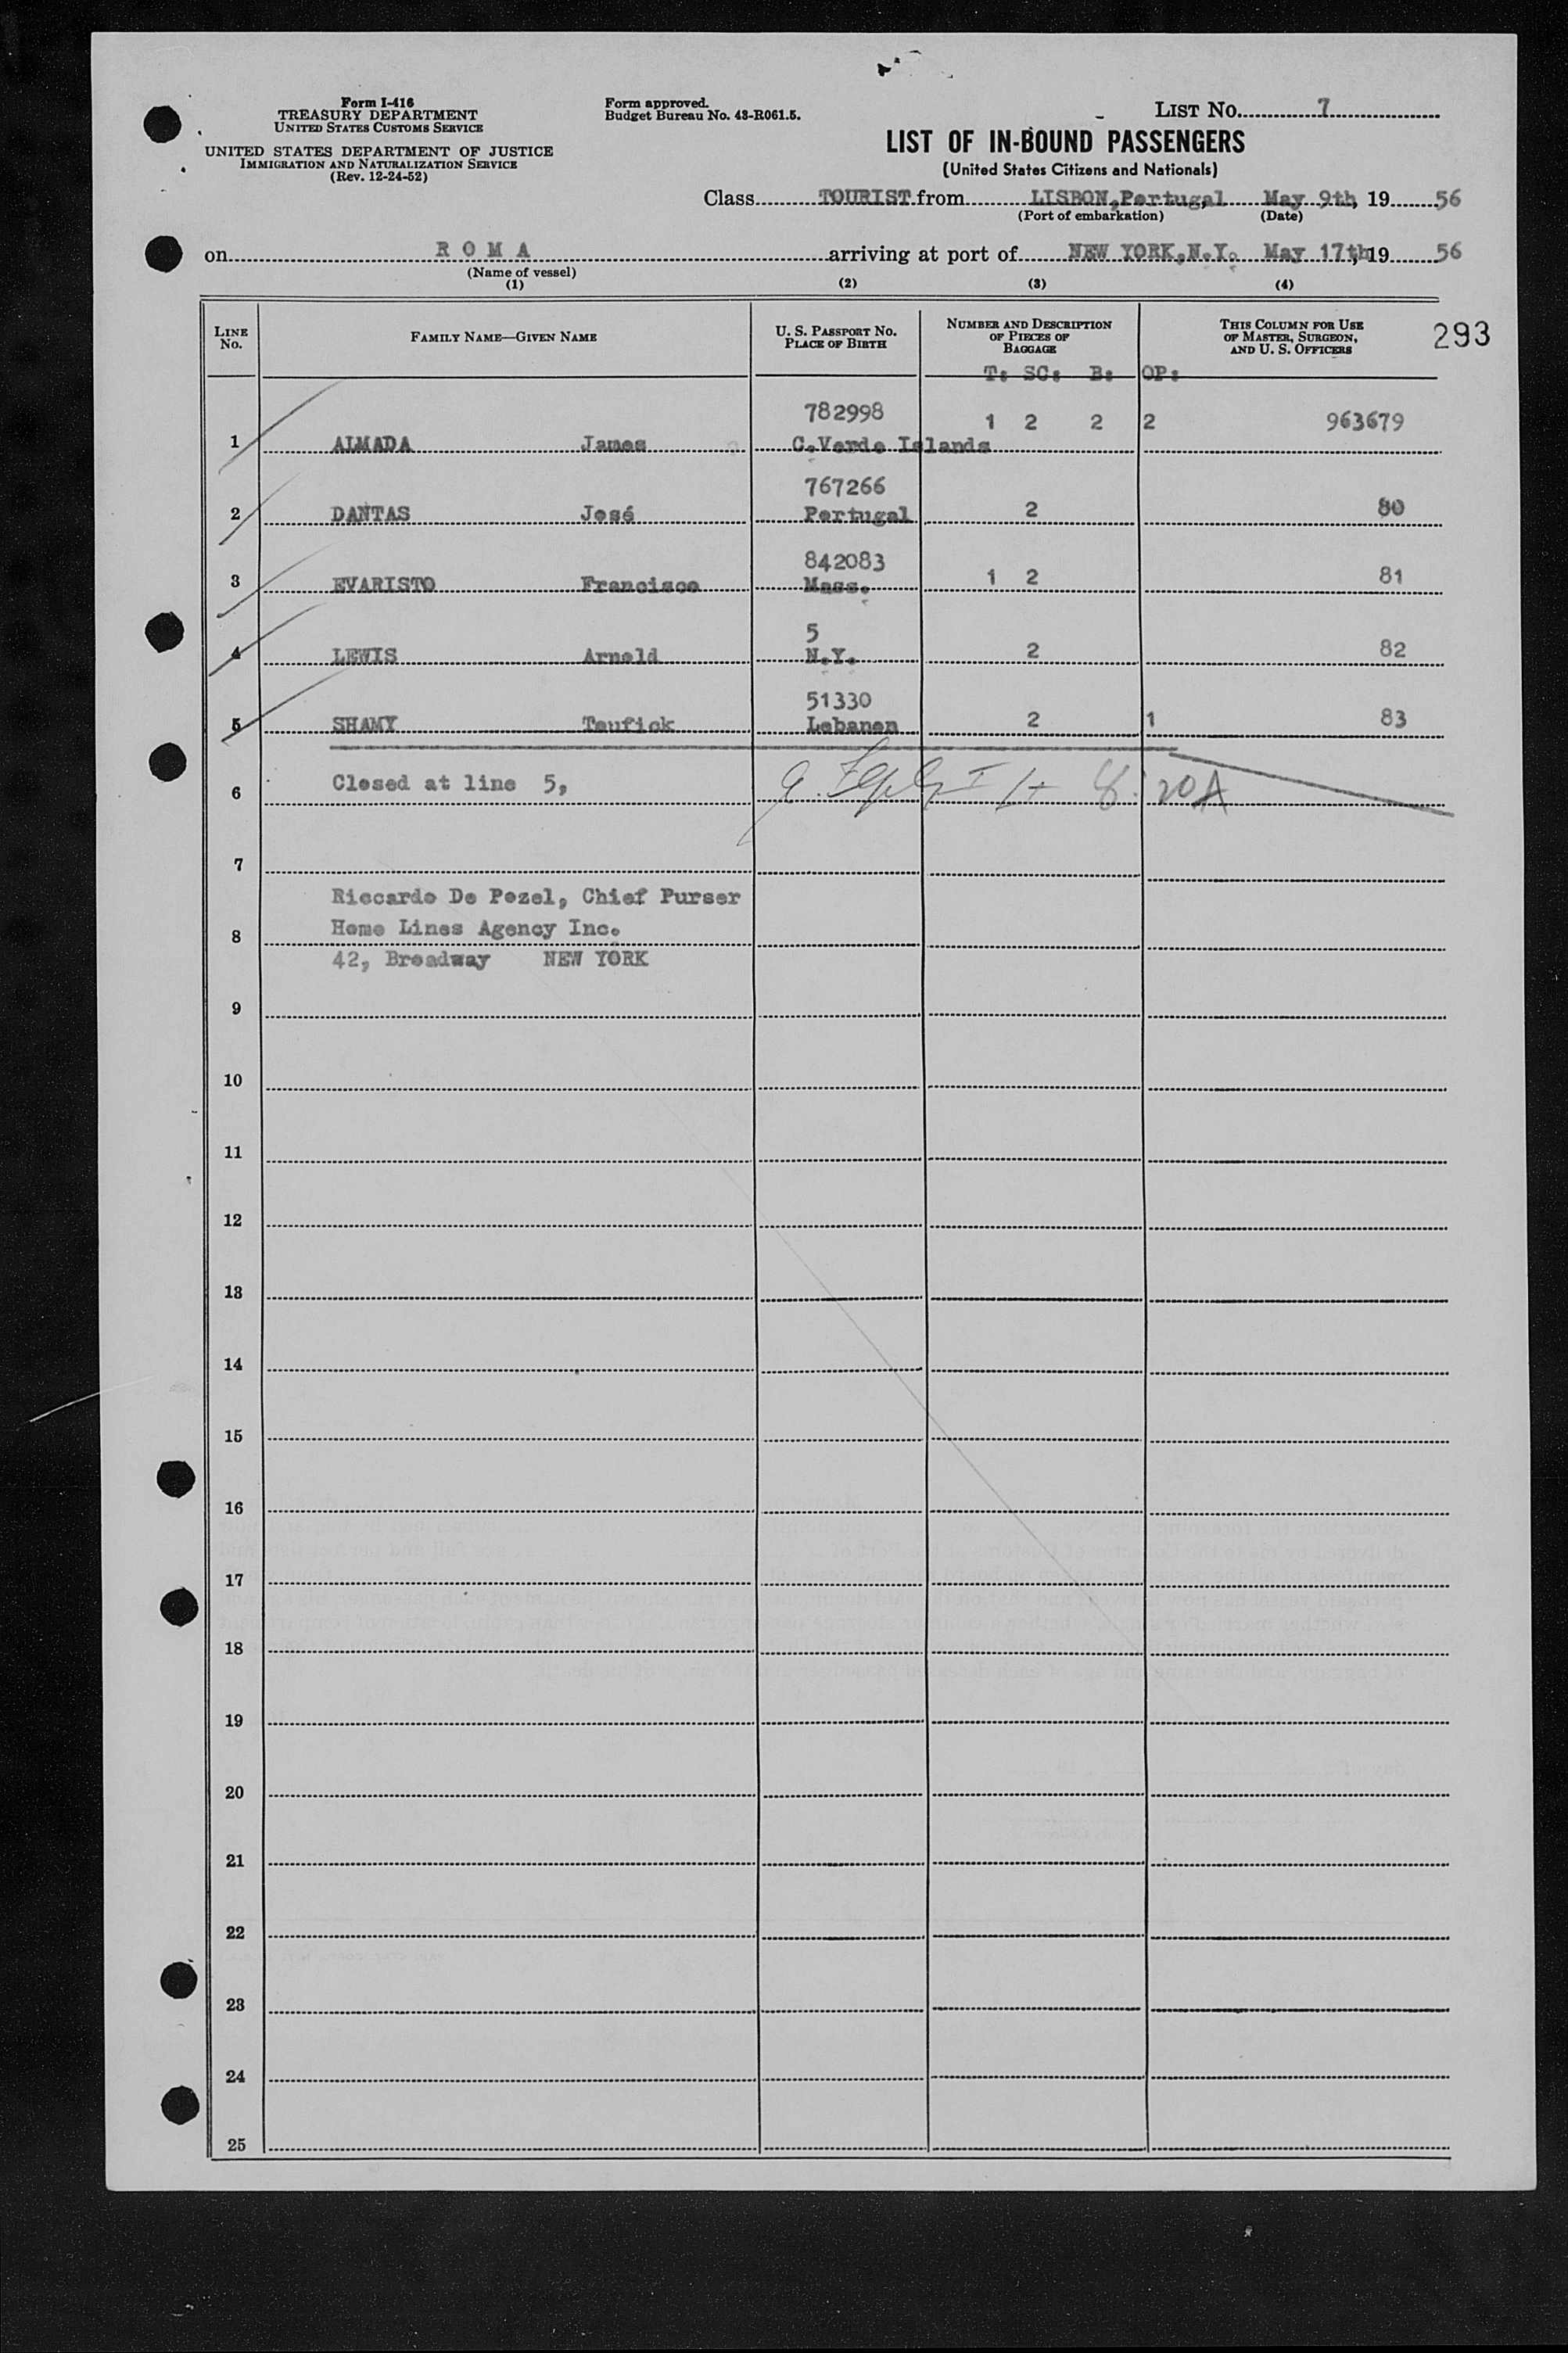 Form I-416
TREASURY DEPARTMENT
UNITED STATES CUSTOMS SERVICE
UNITED STATES DEPARTMENT OF JUSTICE
IMMIGRATION AND NATURALIZATION SERVICE
(Rev. 12-24-52)
Form approved.
Budget Bureau No. 43-R061.5.
LIST No. 7
LIST OF IN-BOUND PASSENGERS
(United States Citizens and Nationals)
Class TOURIST from LISBON, Portugal May 9th, 19 56
(Port of embarkation) (Date)
on R O M A arriving at port of NEW YORK, N.Y. May 17th, 19 56
(Name of vessel)
(1) (2) (3) (4)
LINE No. FAMILY NAME—GIVEN NAME U. S. PASSPORT NO. PLACE OF BIRTH NUMBER AND DESCRIPTION OF PIECES OF BAGGAGE THIS COLUMN FOR USE OF MASTER, SURGEON, AND U. S. OFFICERS 293
T: SC: B: OP:
782998 1 2 2 2 963679
1 ALMADA James C.Verde Islands
767266
2 DANTAS José Portugal 2 80
842083
3 EVARISTO Francisco Mass. 1 2 81
5
4 LEWIS Arnold N.Y. 2 82
51330
5 SHAMY Taufick Lebanon 2 1 83
Closed at line 5,
6 8:20A
7
Riccardo De Pozel, Chief Purser
8 Home Lines Agency Inc.
42, Broadway NEW YORK
9
10
11
12
13
14
15
16
17
18
19
20
21
22
23
24
25